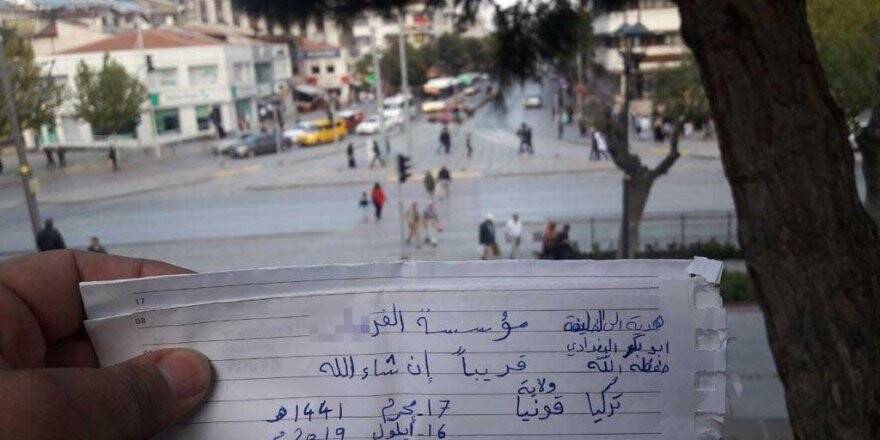 17
08
مؤسسة الفر
قريباً إن شاء الله
هدية إلى الخليفة
ابو بكر البغدادي
حفظه الله
ولاية
تركيا قونيا
17-محرم 1441هـ
16-أيلول 2019م